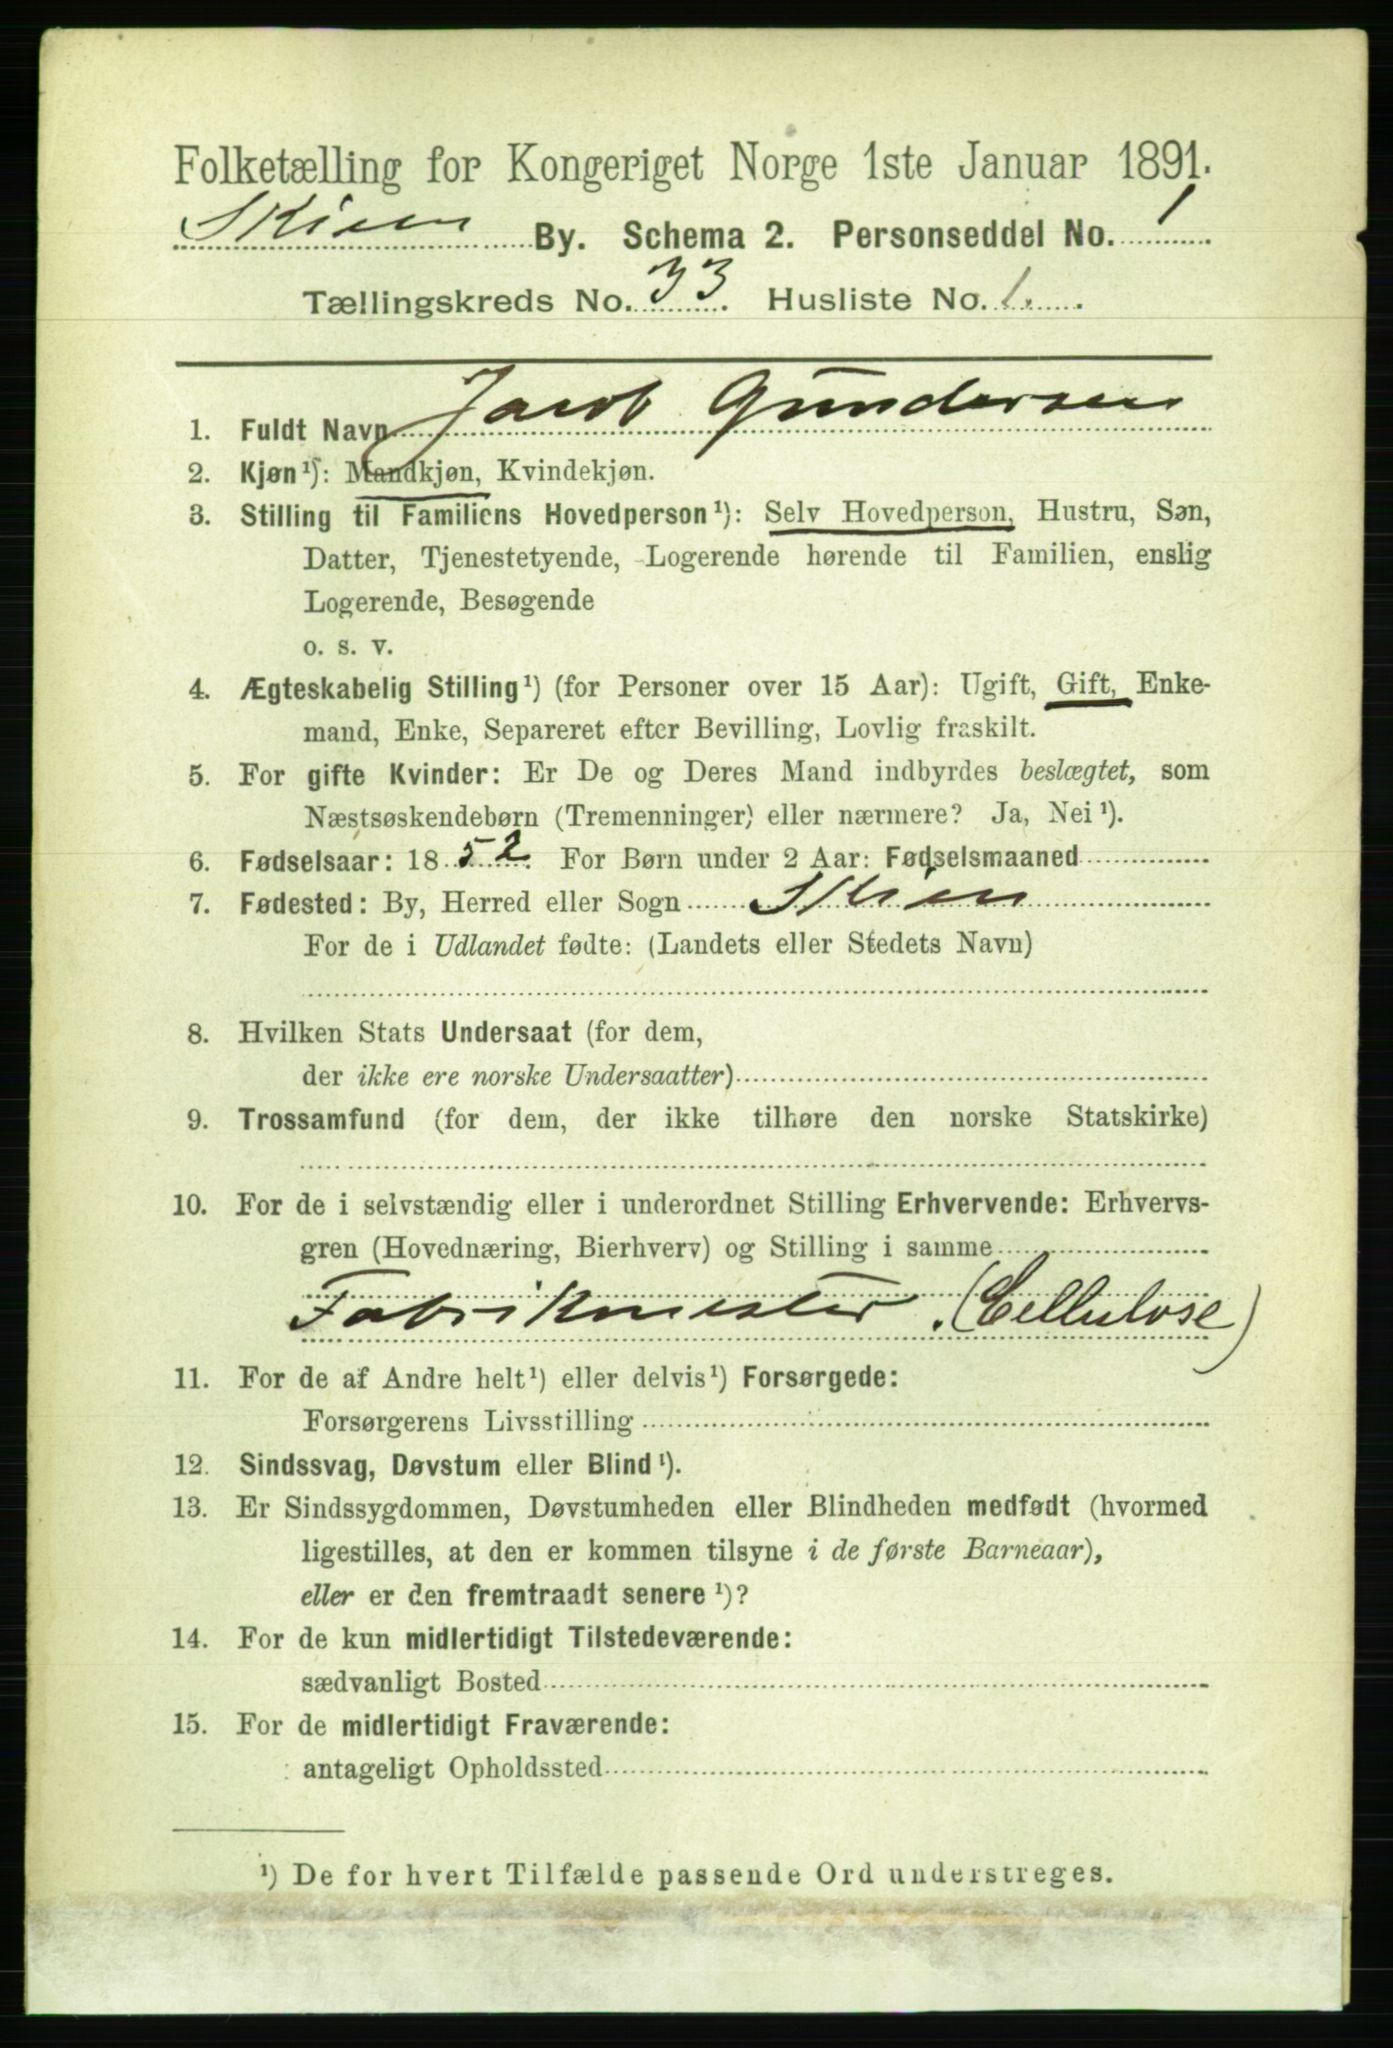 Folketælling for Kongeriget Norge 1ste Januar 1891.
Skien By. Schema 2. Personseddel No. 1
Tællingskreds No. 33. Husliste No. 1.
1. Fuldt Navn Jacob Gundersen
2. Kjøn¹): Mandkjøn, Kvindekjøn.
3. Stilling til Familiens Hovedperson¹): Selv Hovedperson, Hustru, Søn,
Datter, Tjenestetyende, Logerende hørende til Familien, enslig
Logerende, Besøgende
o. s. v.
4. Ægteskabelig Stilling¹) (for Personer over 15 Aar): Ugift, Gift, Enke-
mand, Enke, Separeret efter Bevilling, Lovlig fraskilt.
5. For gifte Kvinder: Er De og Deres Mand indbyrdes beslægtet, som
Næstsøskendebørn (Tremenninger) eller nærmere? Ja, Nei¹).
6. Fødselsaar: 1852. For Børn under 2 Aar: Fødselsmaaned
7. Fødested: By, Herred eller Sogn Skien
For de i Udlandet fødte: (Landets eller Stedets Navn)
8. Hvilken Stats Undersaat (for dem,
der ikke ere norske Undersaatter)
9. Trossamfund (for dem, der ikke tilhøre den norske Statskirke)
10. For de i selvstændig eller i underordnet Stilling Erhvervende: Erhvervs-
gren (Hovednæring, Bierhverv) og Stilling i samme
Fabrikmester. (Cellulose)
11. For de af Andre helt¹) eller delvis¹) Forsørgede:
Forsørgerens Livsstilling
12. Sindssvag, Døvstum eller Blind¹).
13. Er Sindssygdommen, Døvstumheden eller Blindheden medfødt (hvormed
ligestilles, at den er kommen tilsyne i de første Barneaar),
eller er den fremtraadt senere¹)?
14. For de kun midlertidigt Tilstedeværende:
sædvanligt Bosted
15. For de midlertidigt Fraværende:
antageligt Opholdssted
¹) De for hvert Tilfælde passende Ord understreges.